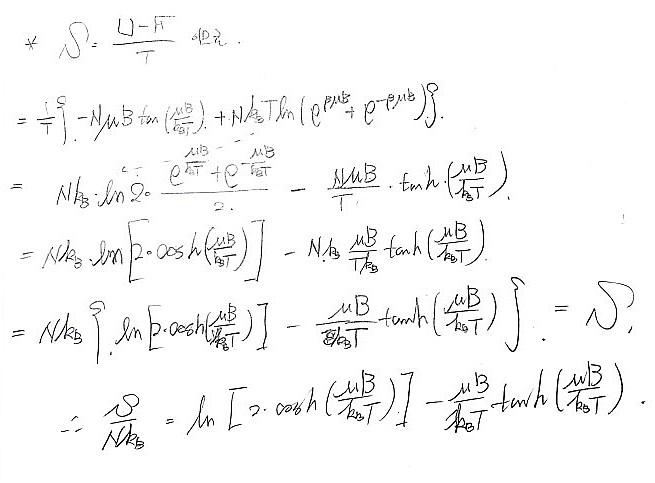 * S = \frac{U-F}{T} 이므로.
= \frac{1}{T} { -NμB tan (\frac{μB}{k_BT}) + Nk_BT ln (e^{βμB} + e^{-βμB}) }.
= Nk_B · ln 2 · \frac{e^{\frac{μB}{k_BT}} + e^{-\frac{μB}{k_BT}}}{2} - \frac{NμB}{T} · tanh · (\frac{μB}{k_BT}).
= Nk_B · ln [2 · cosh (\frac{μB}{k_BT})] - N · k_B \frac{μB}{Tk_B} tanh (\frac{μB}{k_BT}).
= Nk_B { ln [2 · cosh (\frac{μB}{k_BT})] - \frac{μB}{k_BT} tanh (\frac{μB}{k_BT}) } = S.
∴ \frac{S}{Nk_B} = ln [2 · cosh (\frac{μB}{k_BT})] - \frac{μB}{k_BT} tanh (\frac{μB}{k_BT}).